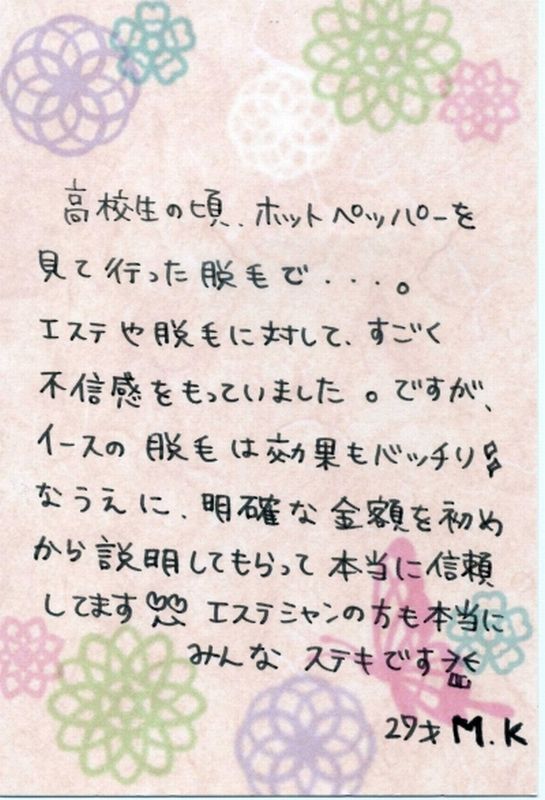 高校生の頃、ホットペッパーを
見て行った脱毛で・・・。
エステや脱毛に対して、すごく
不信感をもっていました。ですが、
イースの脱毛は効果もバッチリ
なうえに、明確な金額を初め
から説明してもらって本当に信頼
してます エステシャンの方も本当に
みんなステキです
27才 M.K